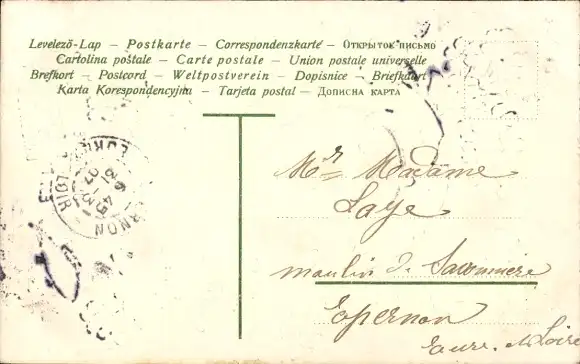 Levelező-Lap – Postkarte – Correspondenzkarte – Открытое письмо
Cartolina postale – Carte postale – Union postale universelle
Brefkort – Postcard – Weltpostverein – Dopisnice – Briefkaart
Karta Korespondencyjna – Tarjeta postal – Дописна карта
Mr Madame
Laye
moulin de
Epernon
Eure-et-Loire
EPERNON
31 - 12
6 45
07
EURE
LOIR